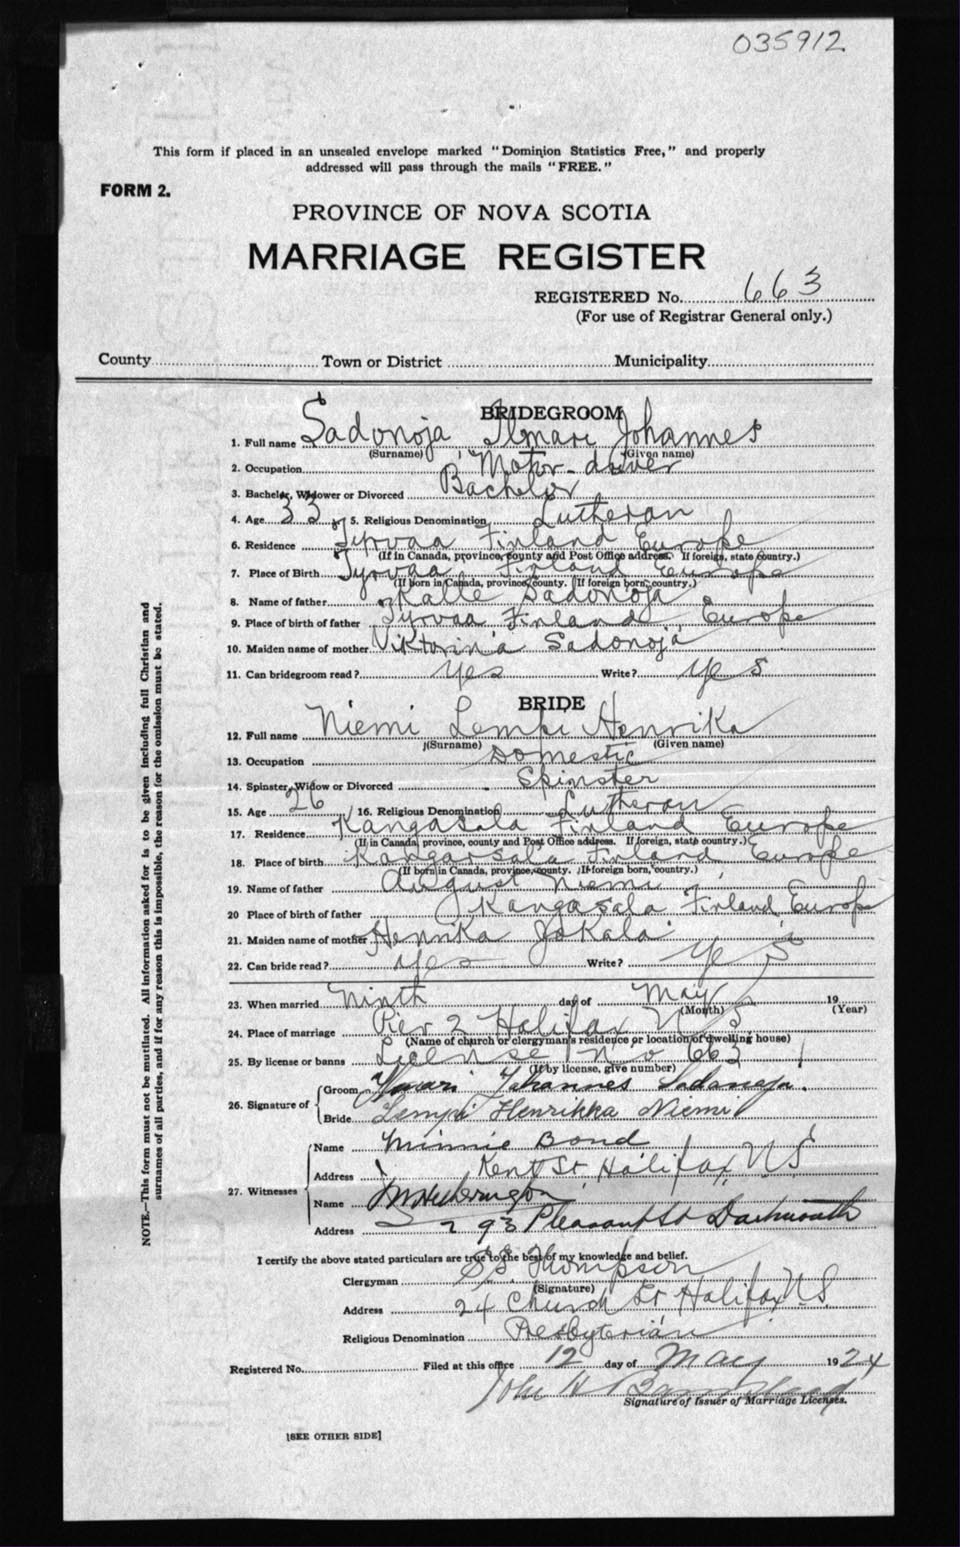 035912
This form if placed in an unsealed envelope marked "Dominion Statistics Free," and properly
addressed will pass through the mails "FREE."
FORM 2.
PROVINCE OF NOVA SCOTIA
MARRIAGE REGISTER
REGISTERED No. 663
(For use of Registrar General only.)
County Town or District Municipality
BRIDEGROOM
1. Full name Sadonoja Ilmari Johannes
(Surname) (Given name)
2. Occupation Motor-driver
3. Bachelor, Widower or Divorced Bachelor
4. Age 33 5. Religious Denomination Lutheran
6. Residence Tyrvaa Finland Europe
(If in Canada, province, county and Post Office address. If foreign, state country.)
7. Place of Birth Tyrvaa Finland Europe
(If born in Canada, province, county. If foreign born, country.)
8. Name of father Kalle Sadonoja
9. Place of birth of father Tyrvaa Finland Europe
10. Maiden name of mother Viktoriina Sadonoja
11. Can bridegroom read? yes Write? yes
BRIDE
12. Full name Niemi Lempi Henrika
(Surname) (Given name)
13. Occupation Domestic
14. Spinster, Widow or Divorced Spinster
15. Age 26 16. Religious Denomination Lutheran
17. Residence Kangasala Finland Europe
(If in Canada, province, county and Post Office address. If foreign, state country.)
18. Place of birth Kangarsala Finland Europe
(If born in Canada, province, county. If foreign born, country.)
19. Name of father August Niemi
20 Place of birth of father Kangasala Finland Europe
21. Maiden name of mother Henrika Jokala
22. Can bride read? yes Write? yes
23. When married Ninth day of May 19
(Month) (Year)
24. Place of marriage Pier 2 Halifax N S
(Name of church or clergyman's residence or location of dwelling house)
25. By license or banns License No 663
(If by license, give number)
26. Signature of
Groom Ilmari Johannes Sadanoja.
Bride Lempi Henrikka Niemi
27. Witnesses
Name Minnie Bond
Address Kent St. Halifax, N S
Name
Address 293 Pleasant St Dartmouth
I certify the above stated particulars are true to the best of my knowledge and belief.
Clergyman Thompson
(Signature)
Address 24 Church St Halifax N.S.
Religious Denomination Presbyterian
Registered No. Filed at this office 12 day of May 1924
John H
Signature of Issuer of Marriage Licenses.
[SEE OTHER SIDE]
NOTE.—This form must not be mutilated. All information asked for is to be given including full Christian and
surnames of all parties, and if for any reason this is impossible, the reason for the omission must be stated.